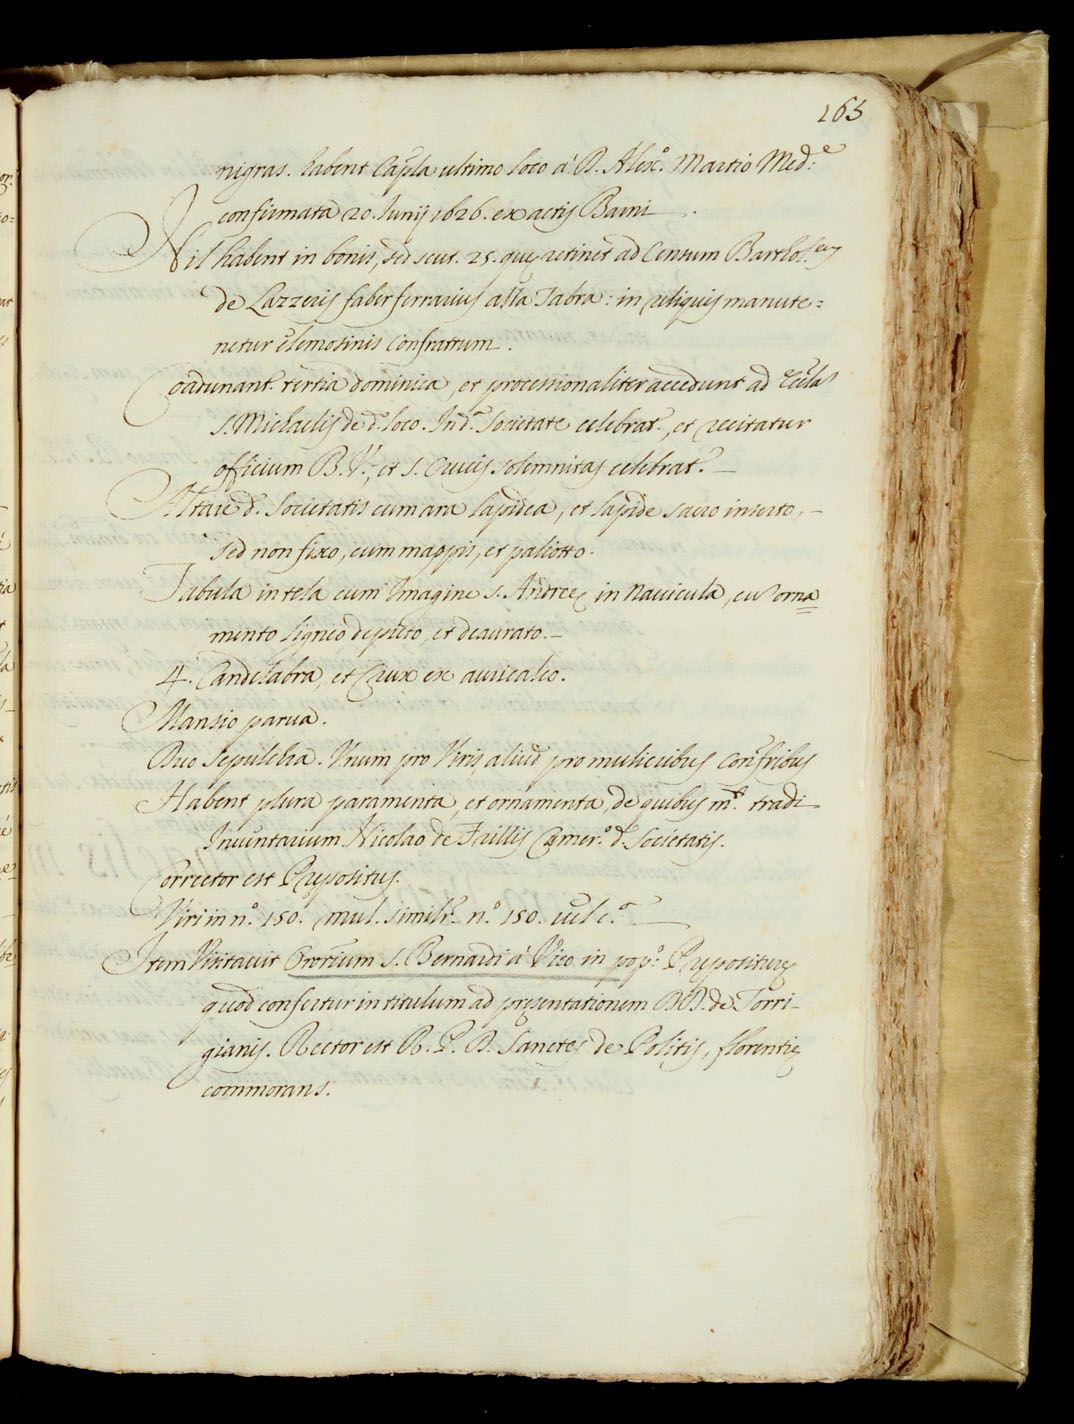 165
nigras. habent Capla ultimo loco à D. Alex.º Martio Med.e
confirmata 20. Iunij 1626. ex actis Barni
Nil habent in bonis, sed scut. 25. que retinet ad Censum Bartholeus
de Lazzeris faber ferrarius alla Tabra: in reliquis manute=
netur elemosinis Confratrum.
Coadunant.r tertia dominica, et processionaliter accedunt ad Eccla
S. Michaelis de d.º loco. In d.ª Societate celebrat.r, et recitatur
officium B. V., et S. Crucis solemnitas celebrat.r
Altare d.e Societatis cum ara lapidea, et lapide sacro inserto,
sed non fixo, cum mappis, et paliotto.
Tabula in tela cum Imagine S. Andreę in Navicula, cu orna=
mento ligneo depicto, et deaurato.
4. Candelabra, et Crux ex auricalco.
Mansio parva.
Duo sepulchra. Vnum pro Viris, aliud pro mulieribus Confribus
Habent plura paramenta, et ornamenta, de quibus mt. tradi
Inventarium Nicolao de Fillis Camer.º d.e Societatis.
Corrector est Prępositus.
Viri in n.º 150. mul. similr n.º 150. vel c.ª
Item Visitavit Ororium S. Bernardi à Vico in pop.º Prępositurę
quod confertur in titulum ad pręsentationem DD. de Torri-
gianis. Rector est R. P. D. Sanctes de Politis, florentię
commorans.